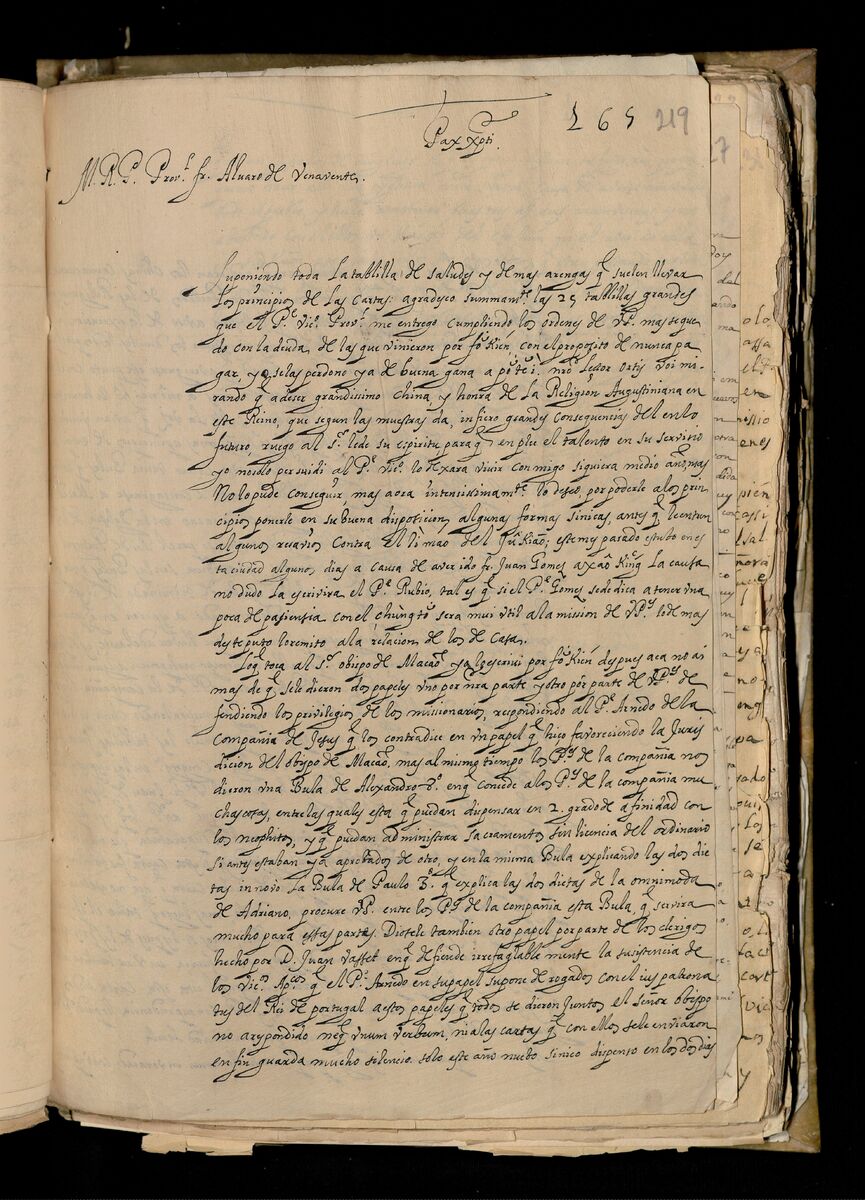 265 219
Pax Xpti.
M. R. P.e Prov.l fr. Alvaro de Venavente,
Suponiendo toda la tablilla de saludes y demas arengas q̃ suelen llevar
los principios de las cartas: agradesco summam.te las 25 tablillas grandes
que el P.e Vic.o Prov.l me entrego cumpliendo los ordenes de VP. mas segue
do con la deuda, de las que vinieron por fõ Kien con el proposito de nunca pa
gar, y se las perdono ya de buena gana nrõ Lector Ortis voi mi
rando q̃ a de ser grandissimo china, y honra de la Religion Augustiniana en
este Reino, que segun las muestras da, infiero grandes consequencias del en lo
futuro, ruego al S.r le de su espiritu para q̃ en plee el talento en su servisio
yo no solo persuidi al P.e Vic.o lo dexara vivir con migo siquiera medio año, mas
No lo pude conseguir, mas aora intensissimam.te lo deseo, por poderle a los prin
cipios ponerle en su buena disposicion, algunas formas sinicas, antes q̃ le entren
algunos resavios contra el li mao del Ju Kiao; este my parado estubo en es
ta ciudad algunos dias a causa de aver ido fr. Juan Gomes a xao King la causa
no dudo la escrivira el P.e Rubio, tal es q̃ si el P.e Gomes se dedica a tener vna
poca de pasiensia con el chũng tõ sera mui vtil a la mission de VP.s lo de mas
deste puto lo remito a la relacion de los de casa.
Lo q̃ toca al S.r obispo de Macao, ya lo escrivi por fõ Kien despues aca no ai
mas de q̃ se le dieron dos papeles vno por nra parte y otro por parte de VP.s de
fendiendo los privilegios de los missionarios, respondiendo al P.e Arnedo de la
Compañia de Jesus q̃ los contradice en vn papel q̃ hico favoreciendo la Juris
dicion del obispo de Macao, mas al mismo tiempo los P.es de la compañia nos
dieron vna Bula de Alexandro 7.o en q̃ concede a los P.es de la compañia mu
chas cosas, entre las quales esta q̃ puedan dispensar en 2. grado de afinidad con
los neophitos, y q̃ puedan administrar sacramentos sin licencia del ordinario
si antes estaban ya aprobados de otro, y en la misma Bula explicando las dos die
tas in novo la Bula de Paulo 3.o q̃ explica las dos dietas de la omnimoda
de Adriano, procure VP. entre los P.es de la compañia esta Bula, q̃ servira
mucho para estas partes. Diosele tambien otro papel por parte de los clerigos
hecho por D. Juan Vasset en q̃ defiende irrefragable mente la susistencia de
los Vic.os Ap.cos q̃ el P.e Arnedo en su papel supone derogados con el ius patrona
tus del Rei de portugal a estos papeles q̃ todos se dieron Juntos el señor obispo
no a respondido neq̃ vnum verbum, ni a las cartas q̃ con ellos se le enviaron
en fin guarda mucho selencio. solo este año nuebo sinico dispenso en los dos dias